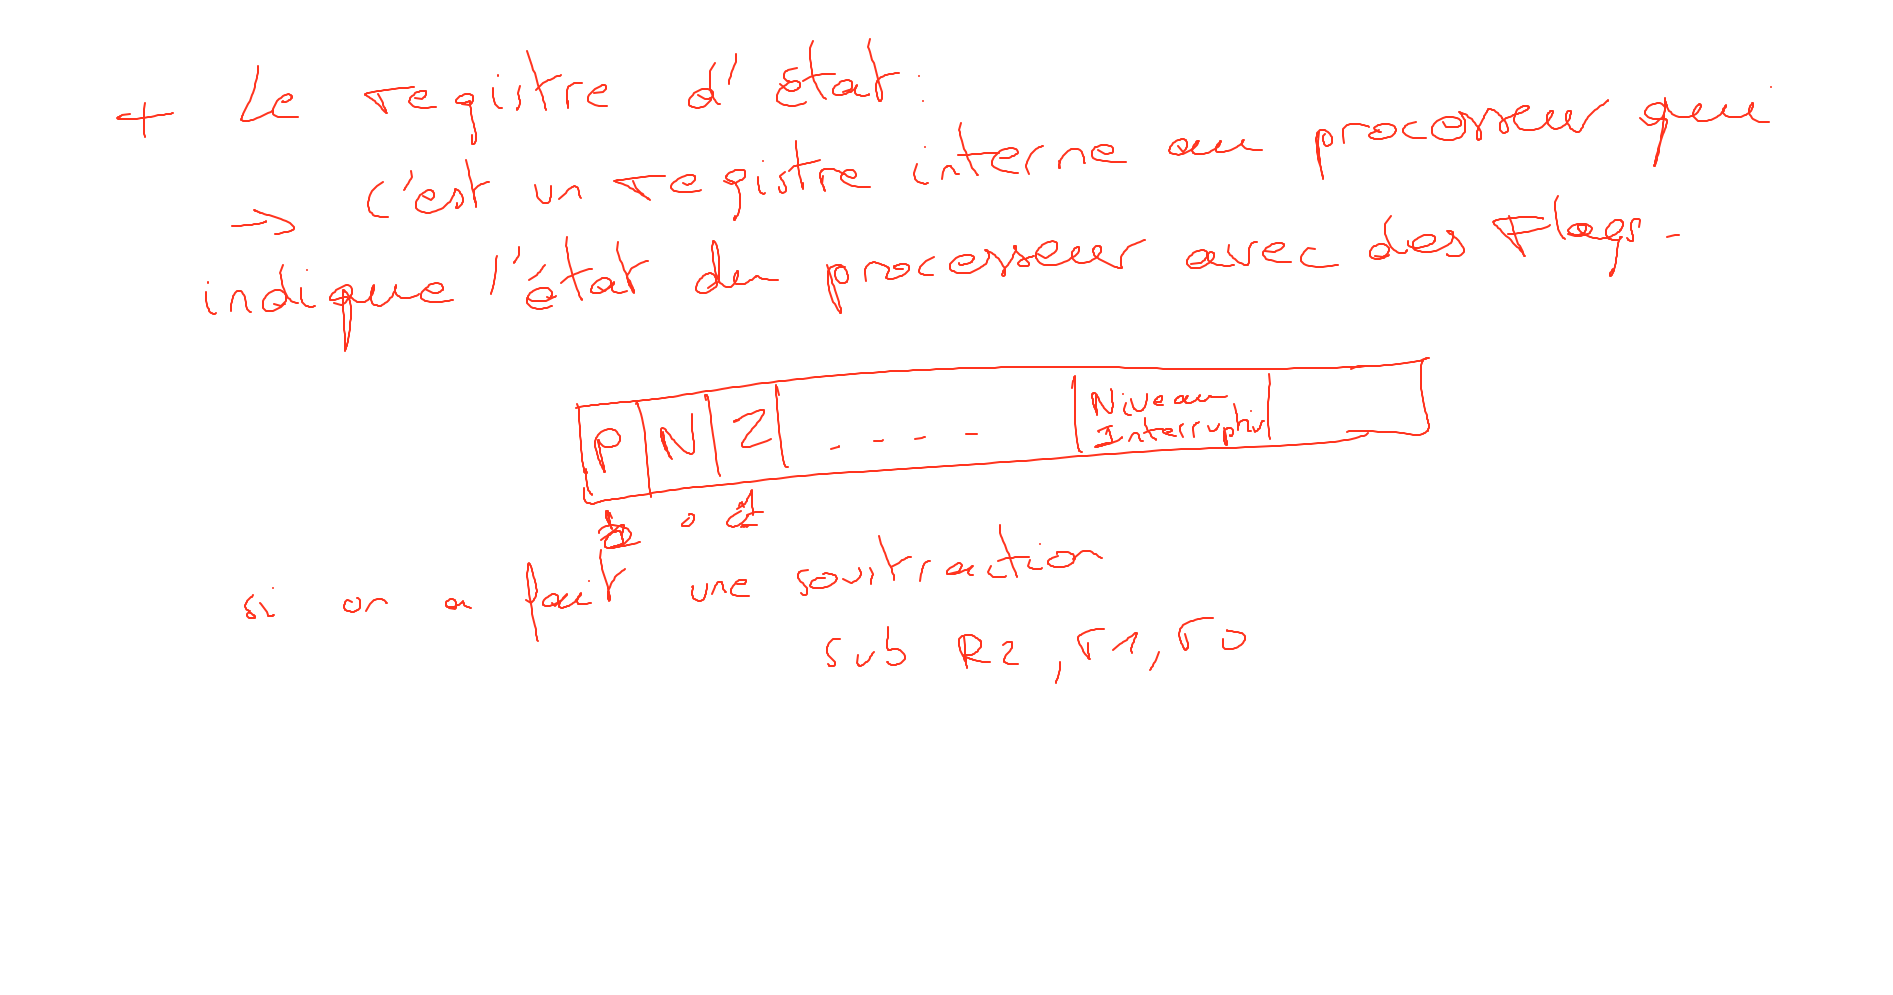 + Le registre d'état:
→ c'est un registre interne au processeur qui
indique l'état du processeur avec des Flags.
P N Z - - - - Niveau
Interruption
0 1
si on a fait une soustraction
sub R2, r1, r0